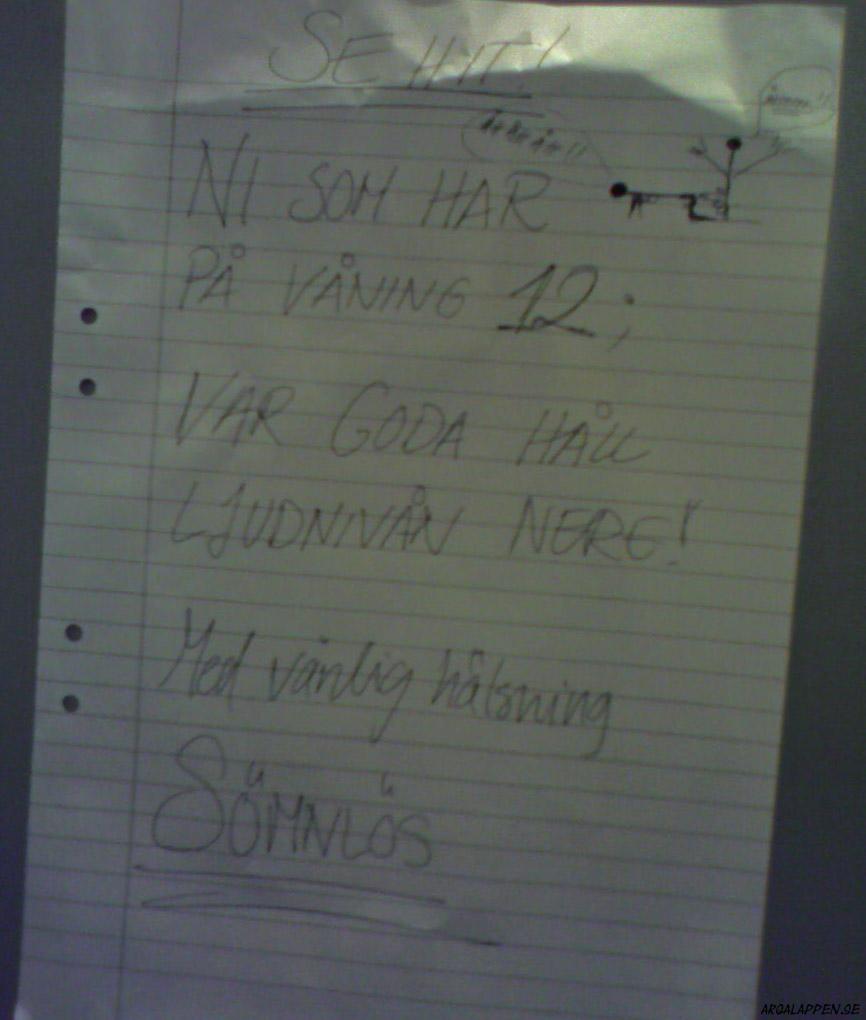 SE HIT!
NI SOM HAR
PÅ VÅNING 12;
VAR GODA HÅLL
LJUDNIVÅN NERE!
Med vänlig hälsning
SÖMNLÖS
ARGALAPPEN.SE